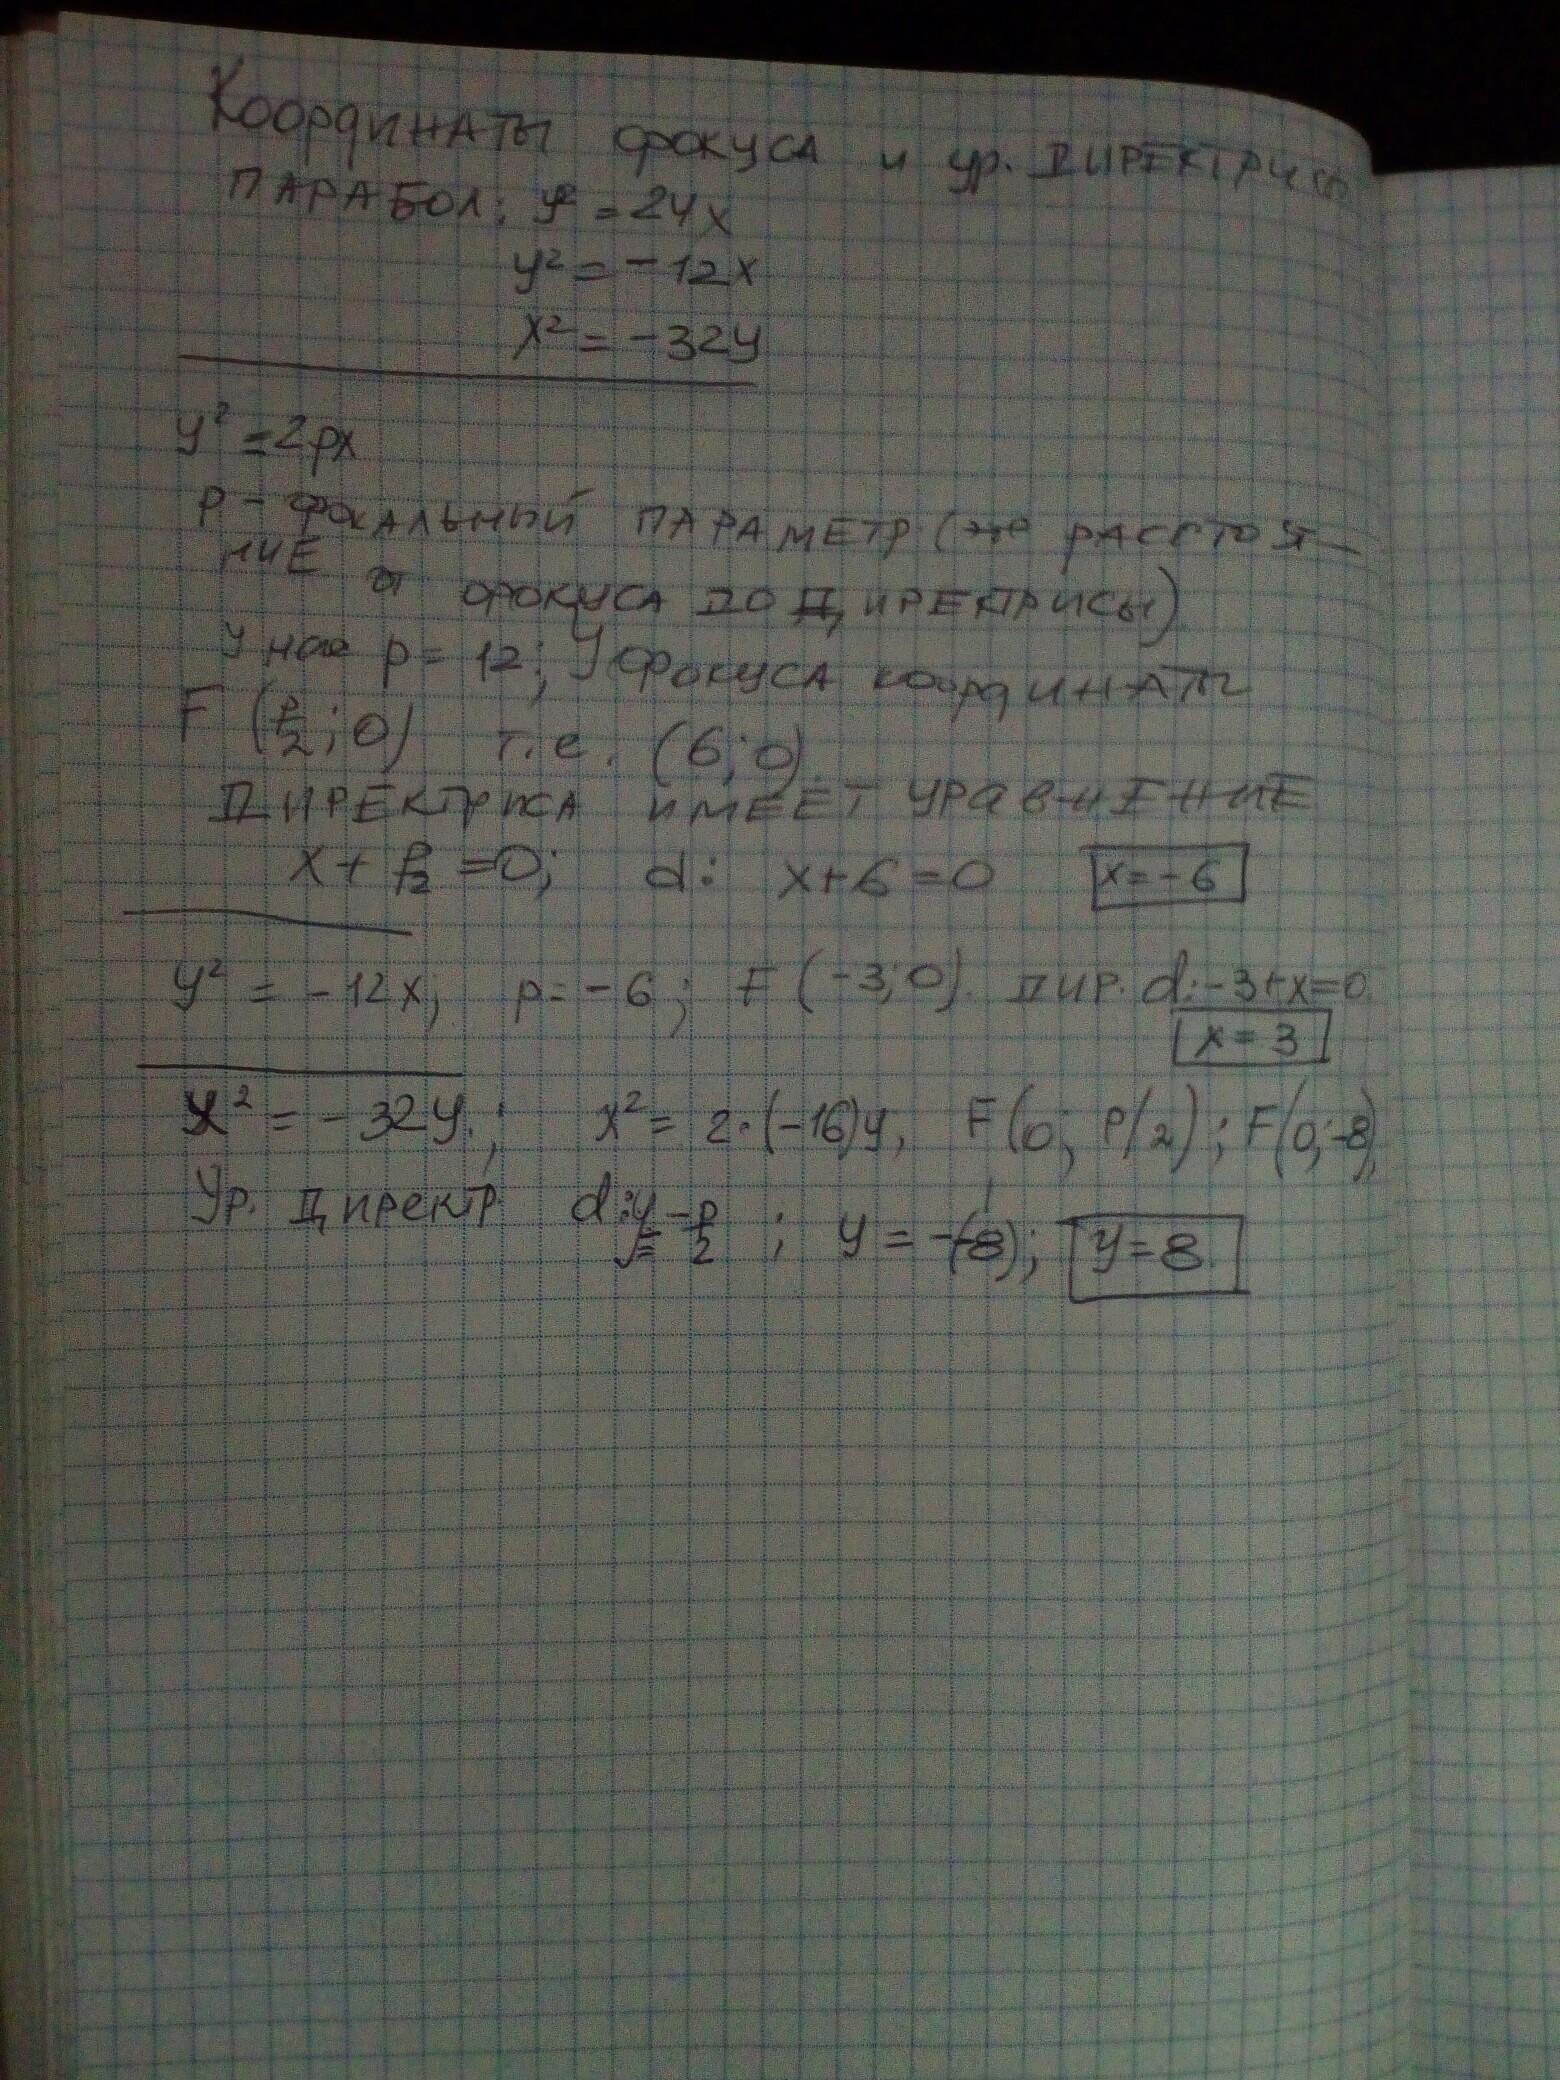 Координаты фокуса и ур. директрисы
парабол: y² = 24x
y² = -12x
x² = -32y
y² = 2px
p - фокальный параметр (же расстоя-
ние от фокуса до директрисы)
У нас p = 12; У фокуса координаты
F (p/2; 0) т.е. (6; 0)
Директриса имеет уравнение
x + p/2 = 0; d: x+6=0 x=-6
y² = -12x; p=-6; F (-3; 0). дир. d: -3+x=0
x = 3
x² = -32y.; x² = 2·(-16)y, F(0; p/2); F(0; -8),
Ур. директр d: y = -p/2 ; y = -(-8); y=8